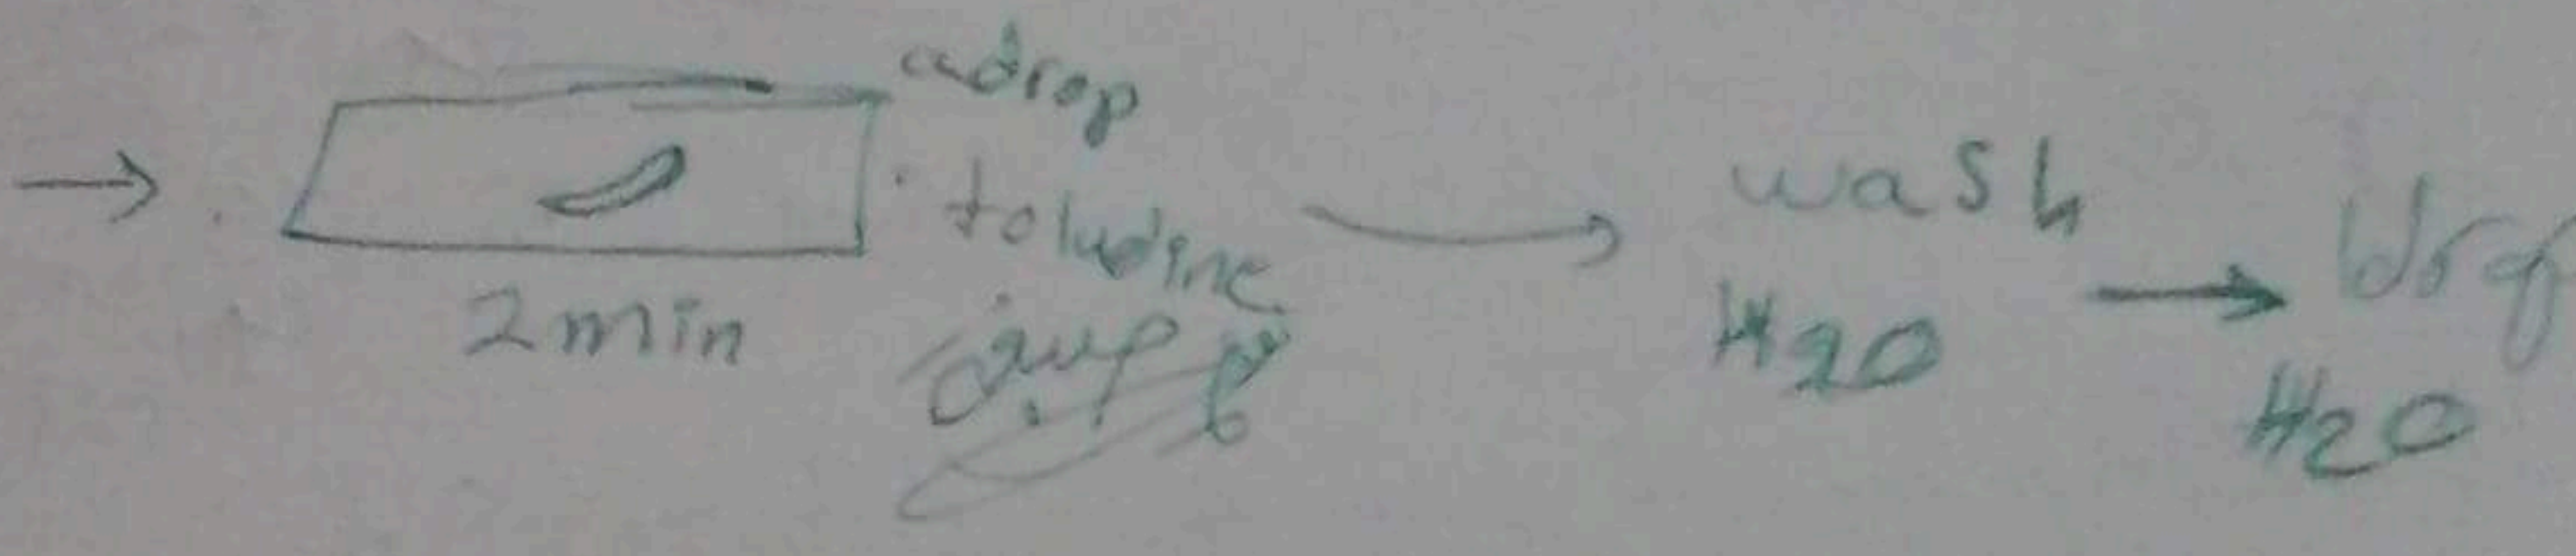 adrop
toludine
2 min
wash
H2O
H2O